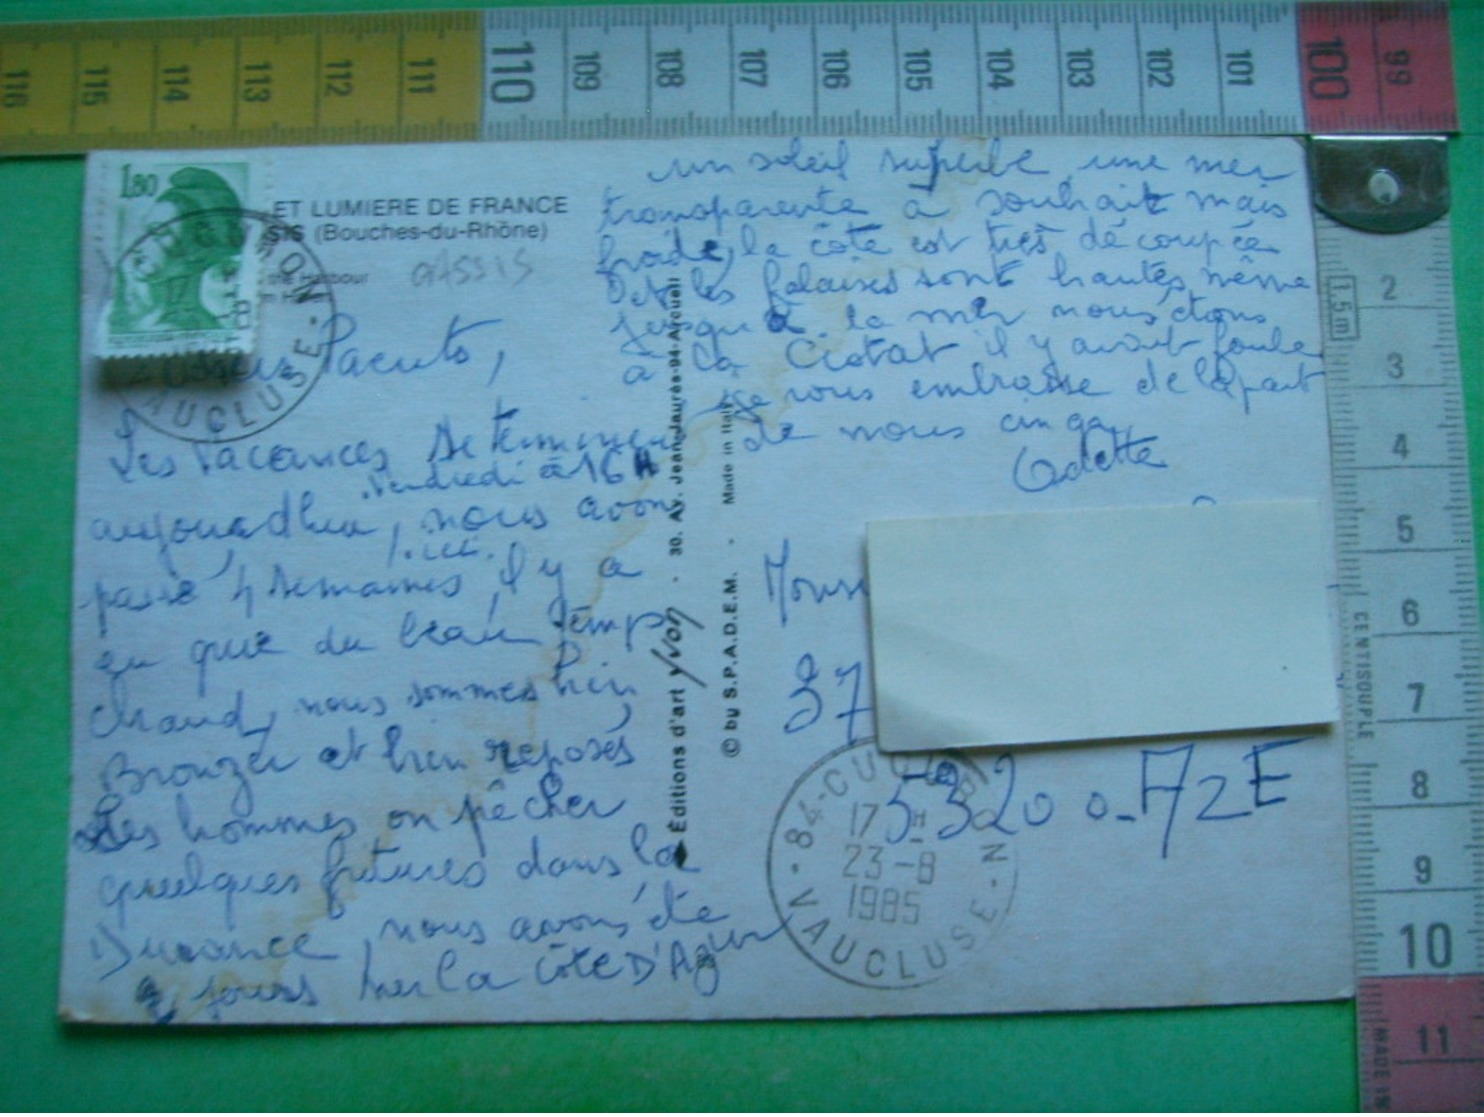 116 115 114 113 112 111 110 109 108 107 106 105 104 103 102 101 100 99
1,80
ET LUMIERE DE FRANCE
SIS (Bouches-du-Rhône)
CASSIS
VAUCLUSE
Parents,
Les Vacances se terminent
Vendredi à 16 H
aujourd'hui, nous avons
ici
passé 4 semaines, il y a
eu que du beau temps
chaud, nous sommes bien
Bronzer et bien reposés
Les hommes on pêcher
quelques fritures dans la
Durance, nous avons été
2 jours sur la côte D'Azur
un soleil superbe une mer
transparente à souhait mais
froide, la côte est très découpée
et les falaises sont hautes même
jusqu'à la mer nous étions
à la Ciotat il y avait foule
je vous embrasse de la part
de nous cinq
Odette
Éditions d'art Yvon - 30, Av. Jean-Jaurès-94-Arcueil
© by S.P.A.D.E.M. - Made in Italy
37
53200 - AZE
84-CUCURON
17H
23-8
1985
VAUCLUSE
1,5m
2
3
4
5
6
7
8
9
10
11
CENTISOUPLE
MADE IN